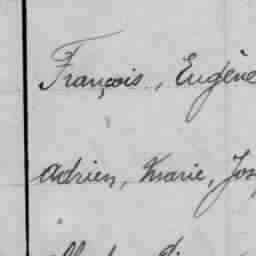 François, Eugène
Adrien, Marie, Jos